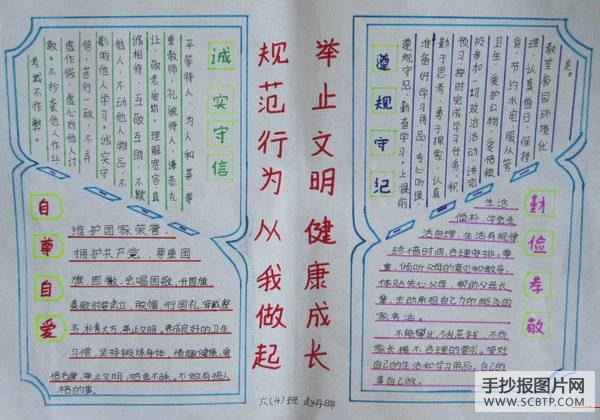 举止文明健康成长
规范行为从我做起
诚实守信
平等待人，为人和善，尊
重教师，礼貌待人，谦恭礼
让，敬老爱幼。理解宽容，真
诚相待，互敬互助，不欺
他人，不动他人物品，不
影响他人学习。诚实守
信，言行一致，不弄
虚作假，虚心向他人讨
教。不抄袭他人作业，
考试不作弊。
遵规守纪
遵规守纪，勤奋学习。上课前
准备好学习用品，专心听课
勤于思考，勇于探索，认真
预习，按时完成学习任务，积
极参加一切政治活动，讲究
卫生，爱护公物，爱惜粮
食，节约水电，服从管
理，认真值日，保持
教室校园环境化
自尊自爱
维护国家荣誉
拥护共产党，尊重国
旗，国徽，会唱国歌，升国旗
奏歌时要肃立，脱帽，行国礼，穿戴整
齐，朴素大方，举止文明，养成良好的卫生
习惯，坚持锻炼身体，情趣健康，爱
惜名誉，举止文明，拾金不昧。不做有损人
格的事。
勤俭孝敬
生活
俭朴，学会生
活自理，生活有规律
珍惜时间，合理安排，尊
重，倾听父母的意见和教导，
体贴关心父母，帮助父母长
辈，主动承担自己力所能及的
家务活。
不能攀比，不乱花钱，不向
家长提不合理的要求。管好
自己的生活和学习用品，自己的
事自己做。
六(4)班
手抄报图片网
WWW.SCBTP.COM